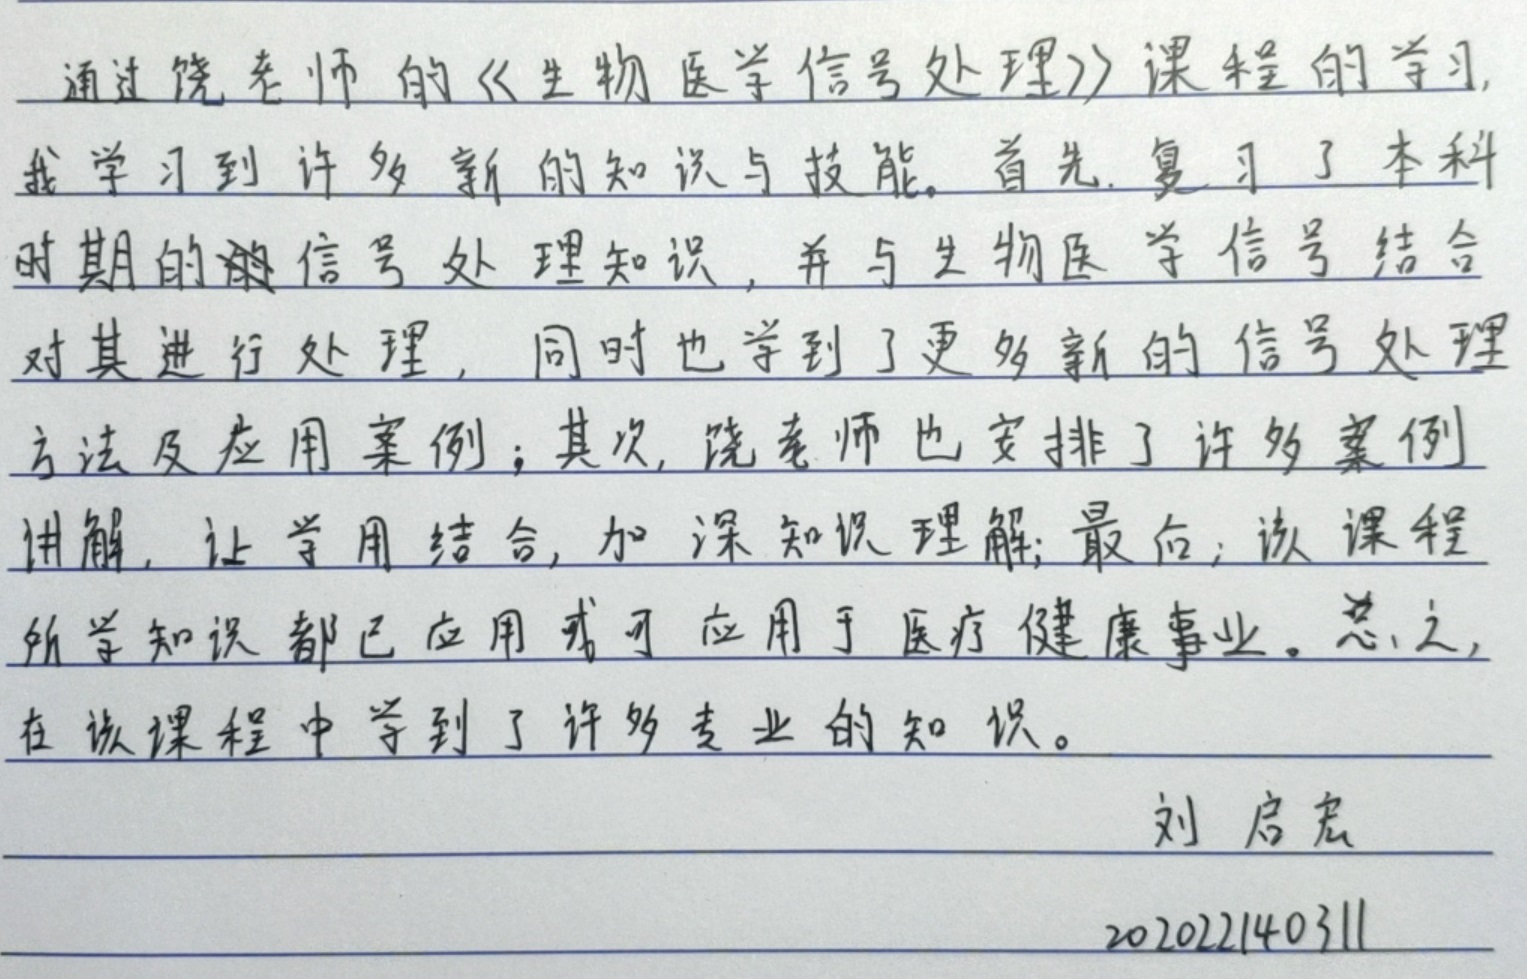 通过饶老师的《生物医学信号处理》课程的学习,
我学习到许多新的知识与技能。首先,复习了本科
时期的信号处理知识,并与生物医学信号结合
对其进行处理,同时也学到了更多新的信号处理
方法及应用案例;其次,饶老师也安排了许多案例
讲解,让学用结合,加深知识理解;最后,该课程
所学知识都已应用或可应用于医疗健康事业。总之,
在该课程中学到了许多专业的知识。
刘启宏
202022140311